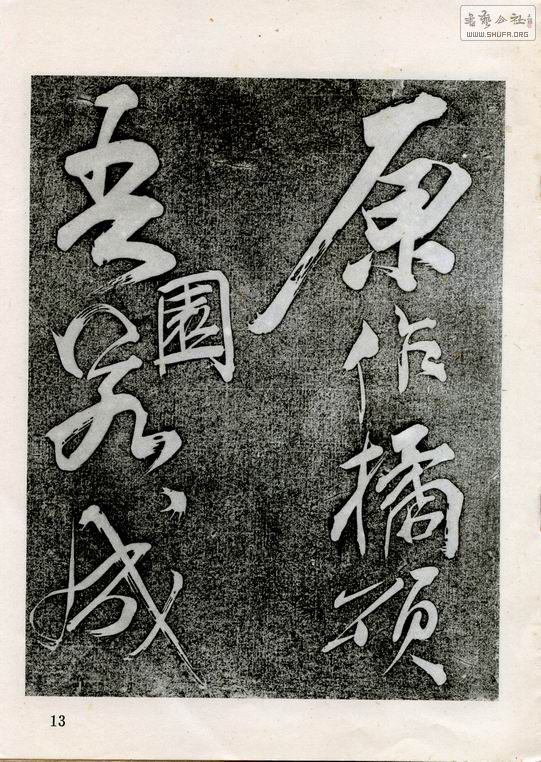 书艺公社
WWW.SHUFA.ORG
原作橘頌
吾園若成
13